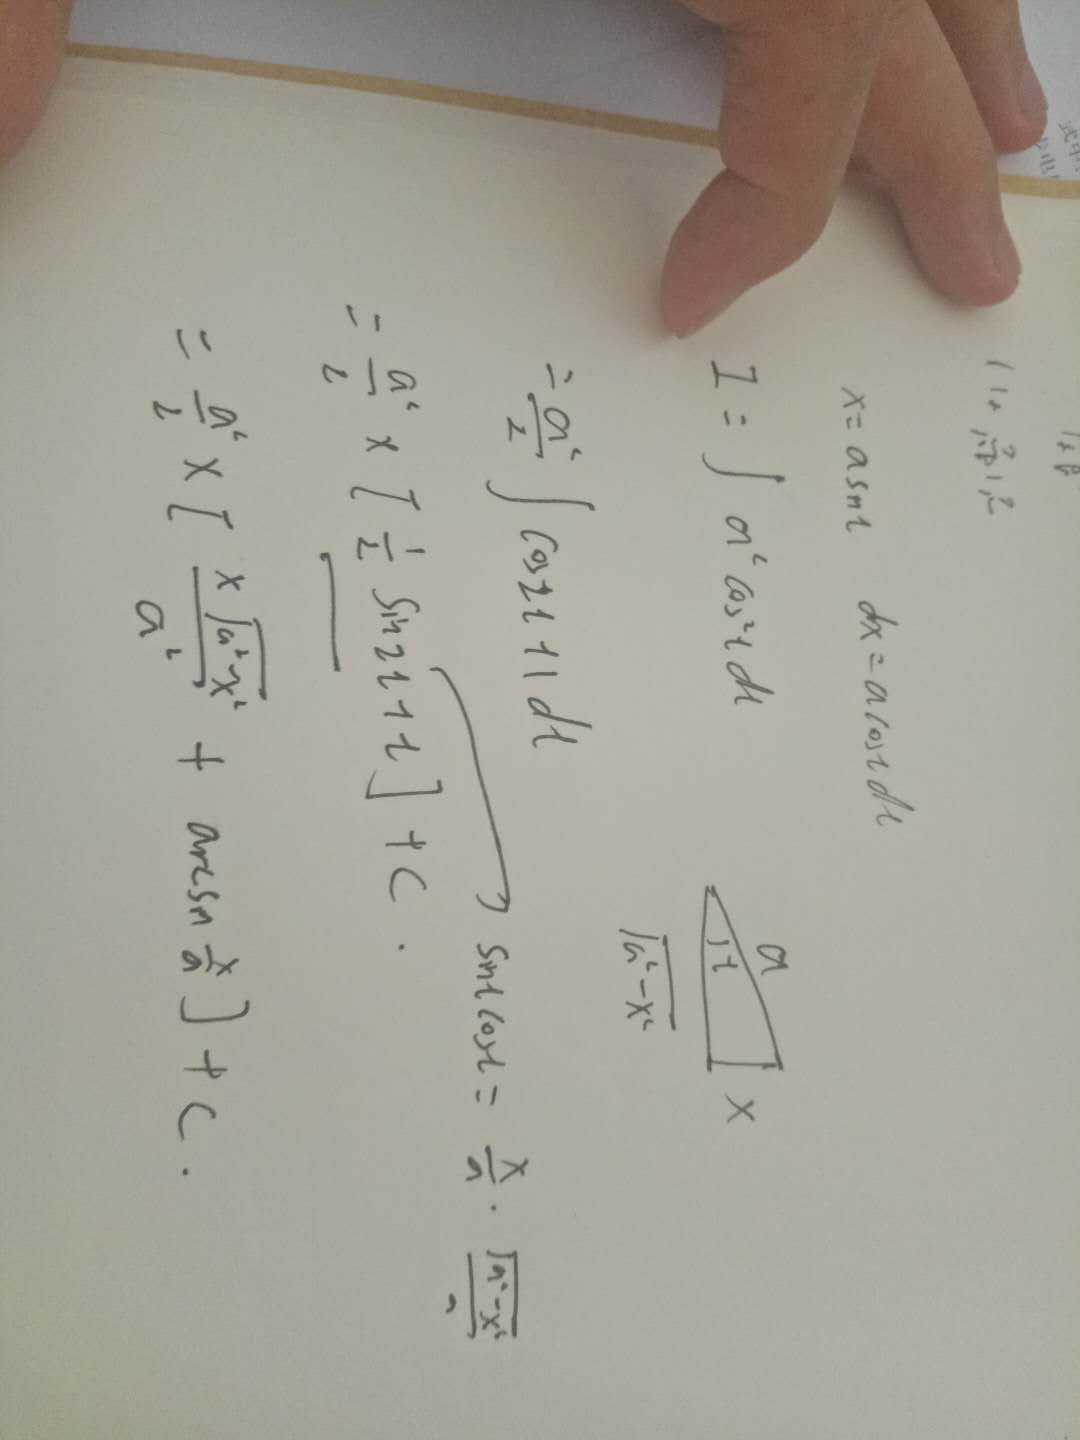 x = a sint dx = a cost dt
I = ∫ a² cos²t dt
= a²/2 ∫ cos2t + 1 dt
a
t
x
√(a²-x²)
= a²/2 × [ 1/2 sin2t + t ] + C .
sint cost = x/a · √(a²-x²)/a
= a²/2 × [ x√(a²-x²)/a² + arcsin x/a ] + C .